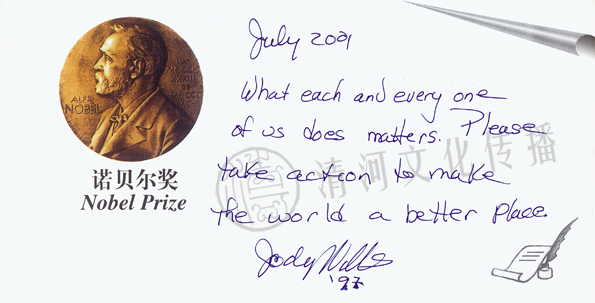 ALFR.
NOBEL
诺贝尔奖
Nobel Prize
July 2001
What each and every one
of us does matters. Please
take action to make
the world a better place.
Jody Williams
'97
清河文化传播